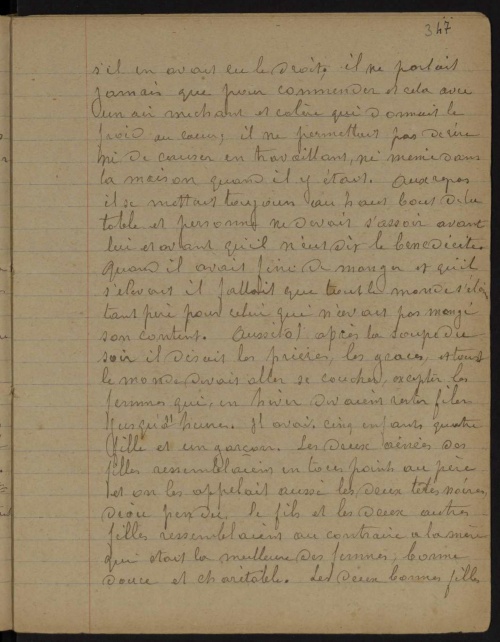 347
s'il en avait eu le droit, il ne parlait
jamais que pour commender et cela avec
un air mechant et colère qui donnait le
froid au cœur; il ne permettait pas de rire
ni de causer en travaillant, ni meme dans
la maison quand il y était. Aux repas
il se mettait toujours au haut bout de la
table et personne ne devait s'assoir avant
lui et avant qu'il n'eut dit le benedicite.
Quand il avait fini de manger et qu'il
s'elevait il fallait que tout le monde s'elev
tant pire pour celui qui n'avait pas mangé
son content. Aussitot après la soupe du
soir il disait les prières, les graces, et tout
le monde devait aller se coucher, excepté les
femmes qui, en hiver devaient rester filer
jusqu'à heures. Il avait cinq enfants quatre
fille et un garçon. Les deux ainées des
filles ressemblaient en tous points au père
et on les appelait aussi les deux tetes noires,
Le fils et les deux autres
filles ressemblaient au contraire a la mère
qui etait la meilleure des femmes, bonne
douce et charitable. Les deux bonnes filles